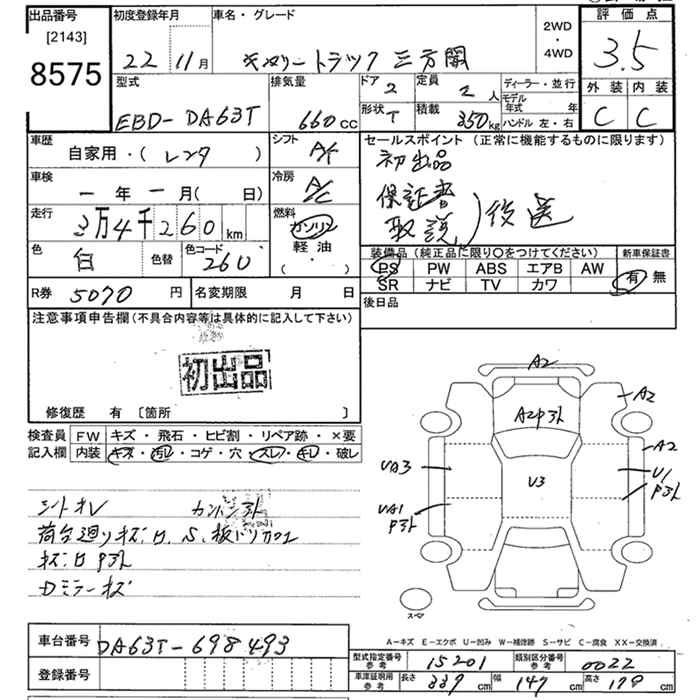 出品番号
[2143]
8575
初度登録年月
22年 11月
車名・グレード
キャリートラック 三方開
2WD
・
4WD
評価点
3.5
型式
EBD-DA63T
排気量
660cc
ドア 2
形状 T
定員 2人
積載 350kg
ディーラー・並行
モデル年式 年
ハンドル 左・右
外装 内装
C C
車歴
自家用・(レンタ)
シフト
A/T
車検
一年一月( 日)
冷房
A/C
走行
3万4千260km
燃料
ガソリン
軽油
( ・ )
色
白
色替
色コード
260
R券 5070円
名変期限 月 日
セールスポイント (正常に機能するものに限ります)
初出品
保証書
取説
後送
装備品 (純正品に限り○をつけてください)
新車保証書
PS PW ABS エアB AW
SR ナビ TV カワ
有 無
後日品
注意事項申告欄 (不具合内容等は具体的に記入して下さい)
初出品
修復歴 有 [箇所 ]
検査員記入欄
FW キズ・飛石・ヒビ割・リペア跡・×要
内装 キズ・汚レ・コゲ・穴・スレ・キレ・破レ
荷台廻りキズ
キズ
ミラーキズ
A2
A2
A2
U1
U3
UA3
UA1
スペア
A-キズ E-エクボ U-凹み W-補修跡 S-サビ C-腐食 XX-交換済
車台番号 DA63T-698493
登録番号
型式指定番号 参考 15201
類別区分番号 参考 0022
車庫証明用 参考
長さ 339cm
幅 147cm
高さ 179cm